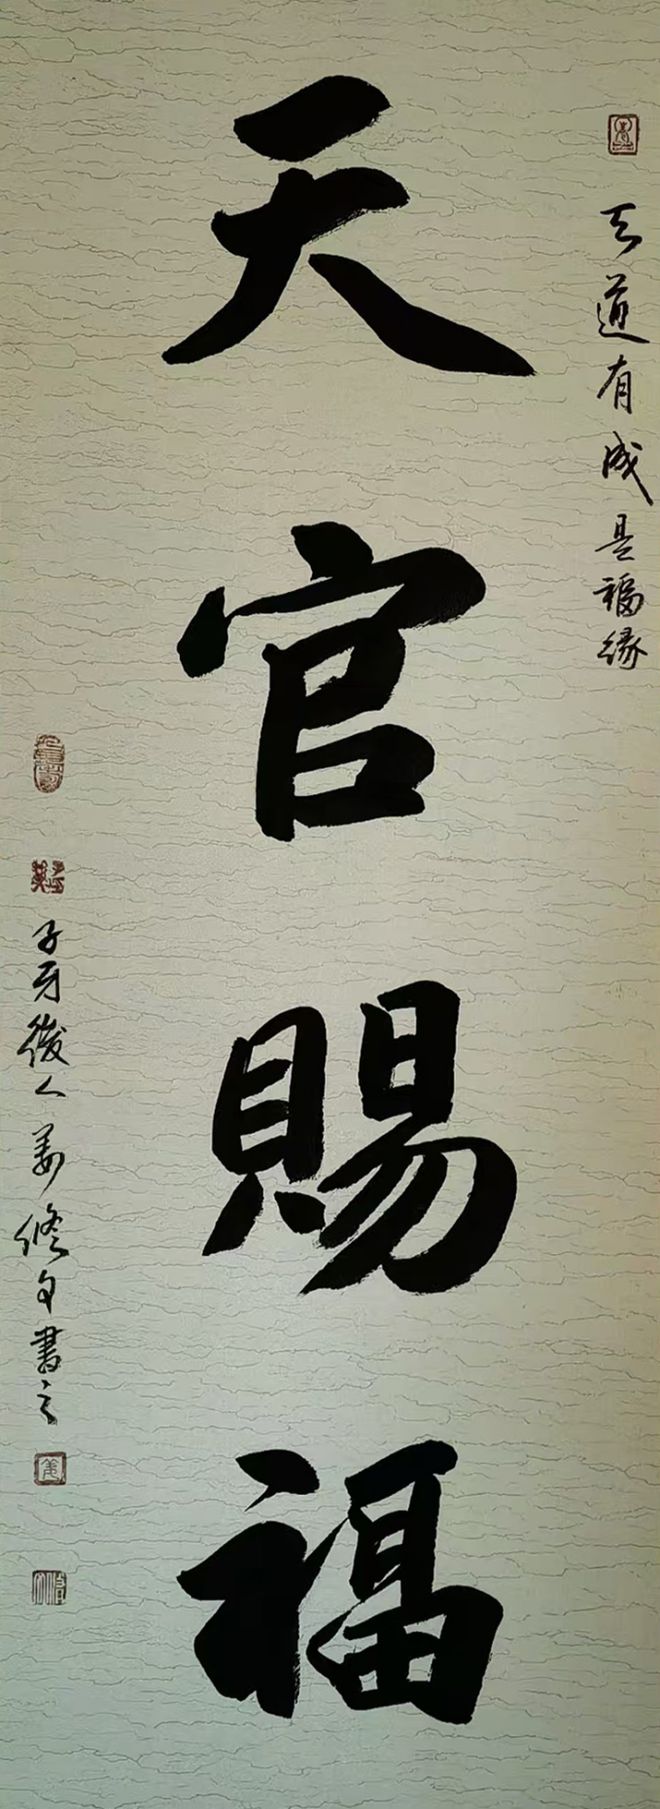 天道有成是福缘
天官賜福
子牙後人姜修身書之